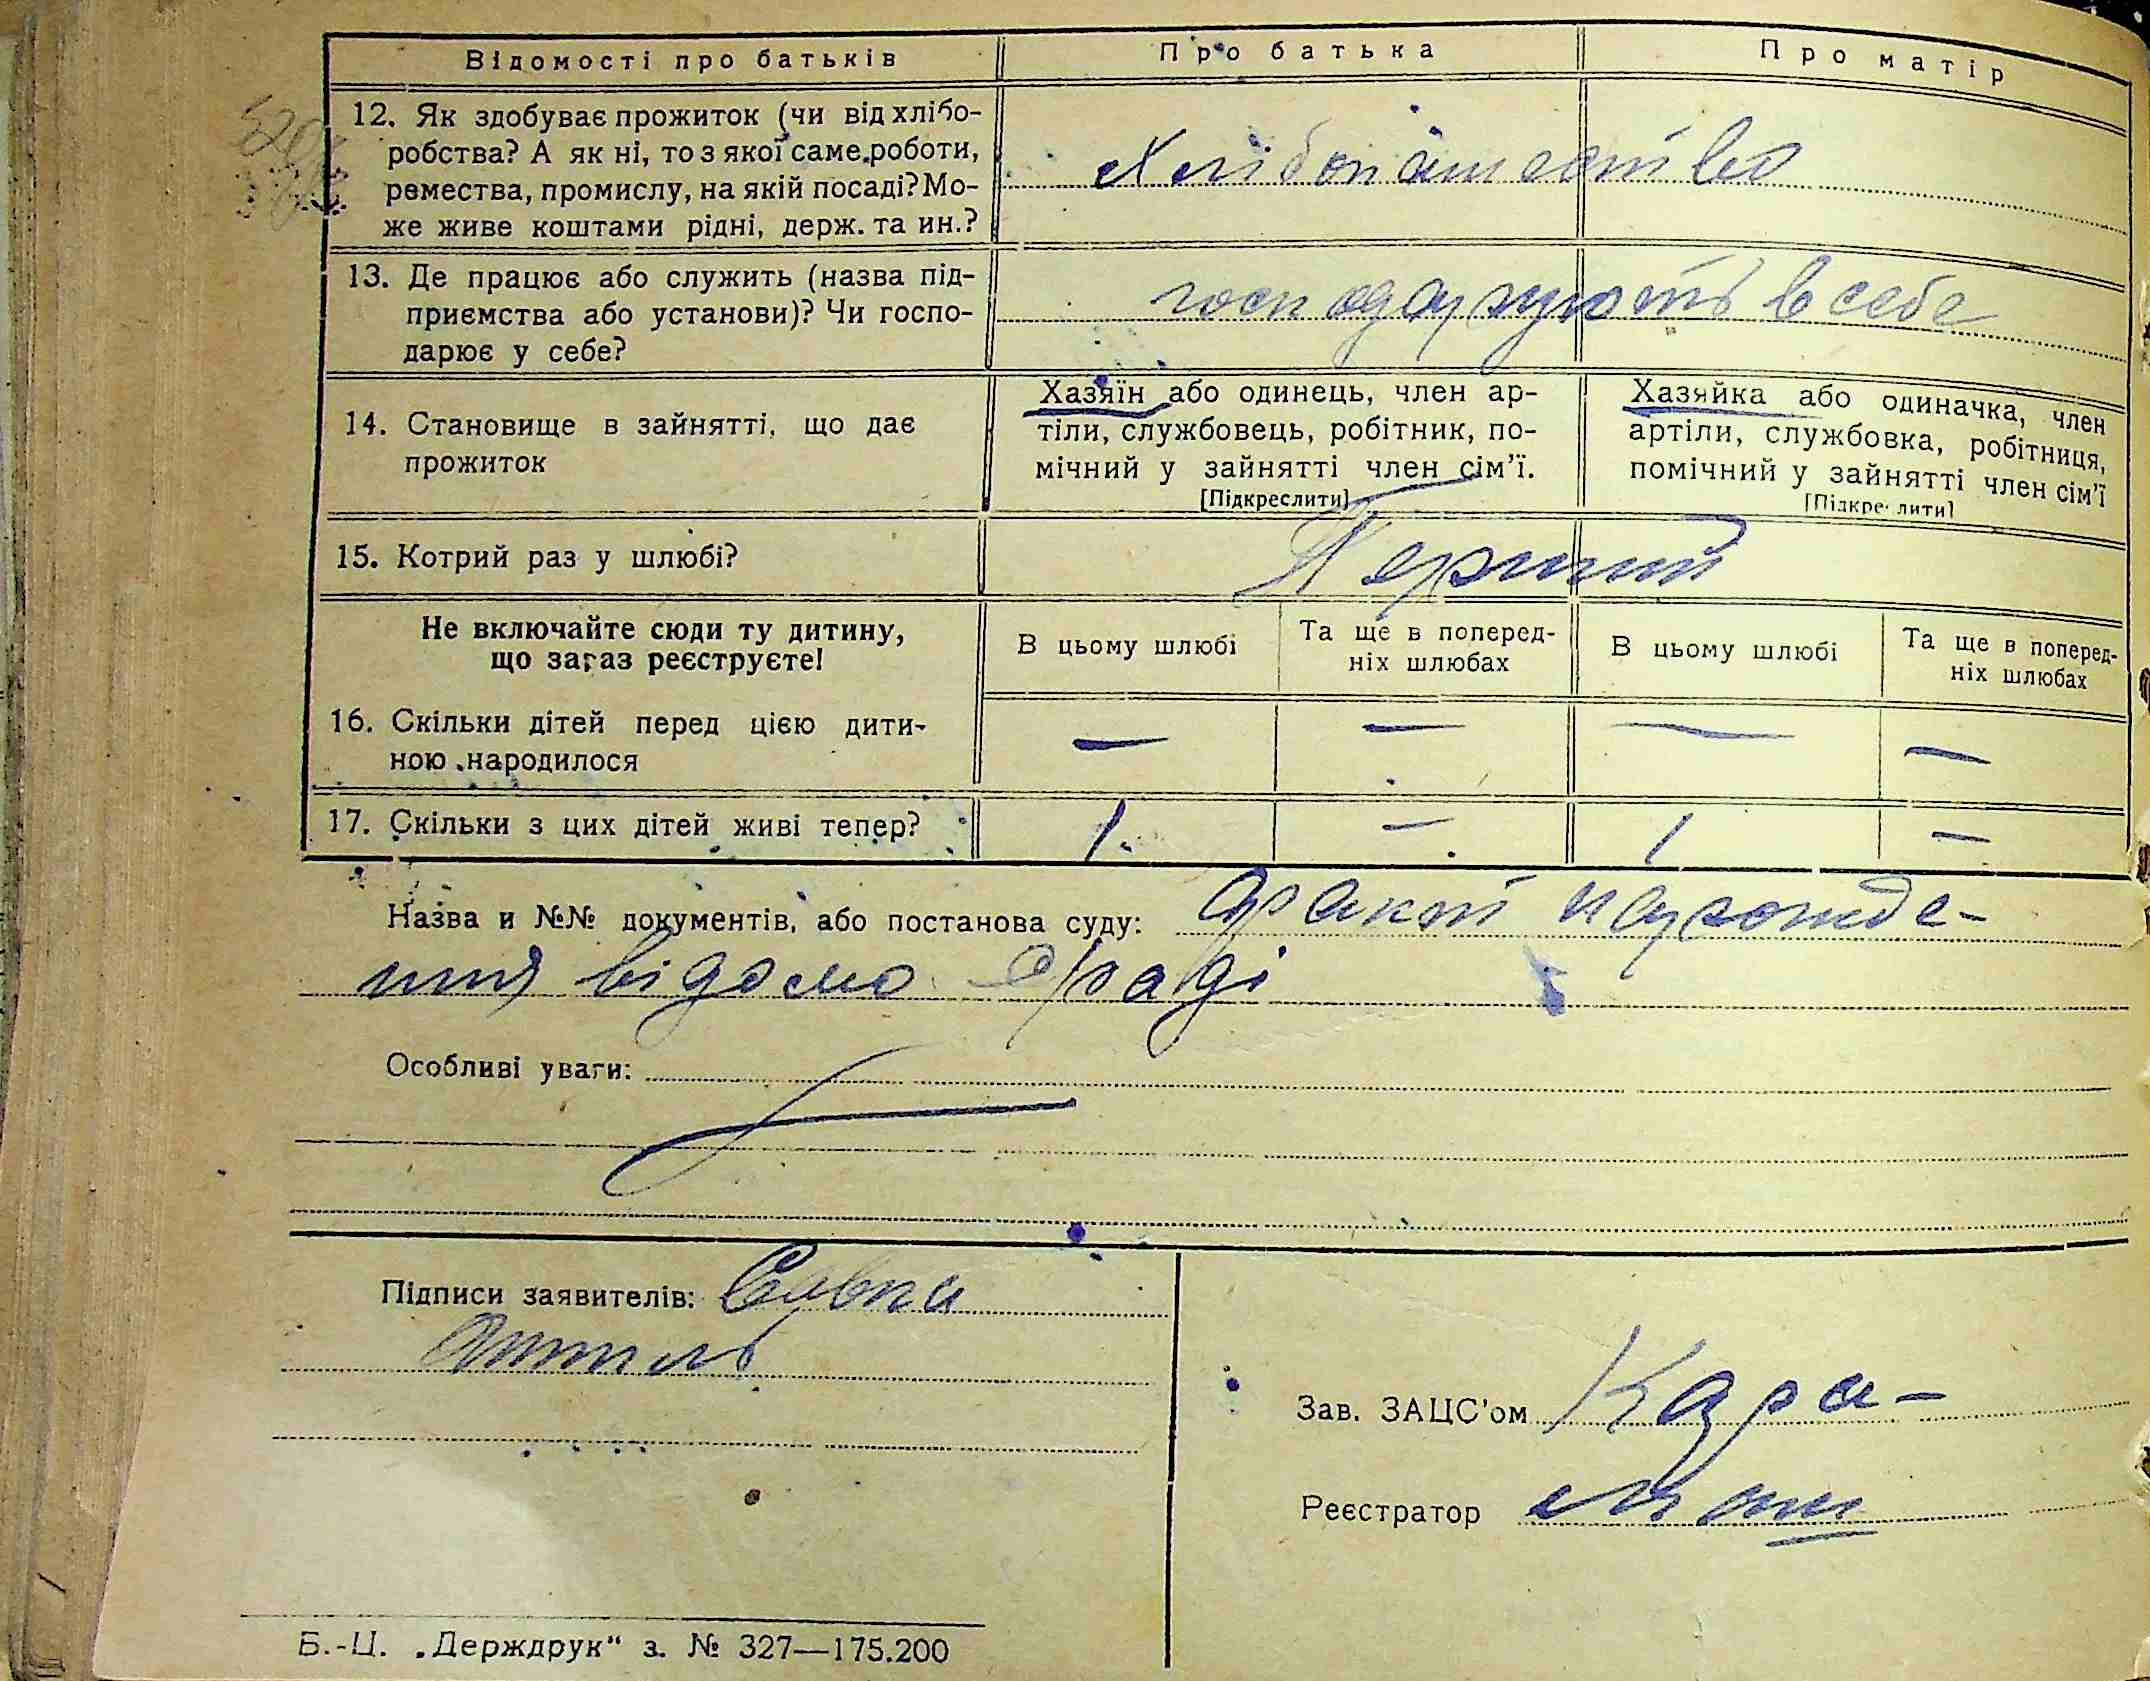 Відомості про батьків Про батька Про матір
12. Як здобуває прожиток (чи від хлібо-
робства? А як ні, то з якої саме роботи,
ремества, промислу, на якій посаді? Мо-
же живе коштами рідні, держ. та ин.?
Хлібопашество
13. Де працює або служить (назва під-
приємства або установи)? Чи госпо-
дарює у себе?
господарують в себе
14. Становище в зайнятті, що дає
прожиток
Хазяїн або одинець, член ар-
тіли, службовець, робітник, по-
мічний у зайнятті член сім'ї.
[Підкреслити]
Хазяйка або одиначка, член
артіли, службовка, робітниця,
помічний у зайнятті член сім'ї
[Підкреслити]
15. Котрий раз у шлюбі? Перший
Не включайте сюди ту дитину,
що зараз реєструєте!
В цьому шлюбі
Та ще в поперед-
ніх шлюбах
В цьому шлюбі
Та ще в поперед-
ніх шлюбах
16. Скільки дітей перед цією дити-
ною народилося
— — — —
17. Скільки з цих дітей живі тепер? 1. — 1 —
Назва и №№ документів, або постанова суду: факт нарожде-
ния відомо с/раді
Особливі уваги:
Підписи заявителів: Савка
Зав. ЗАЦС'ом Кара-
Реєстратор
Б.-Ц. „Держдрук“ з. № 327—175.200